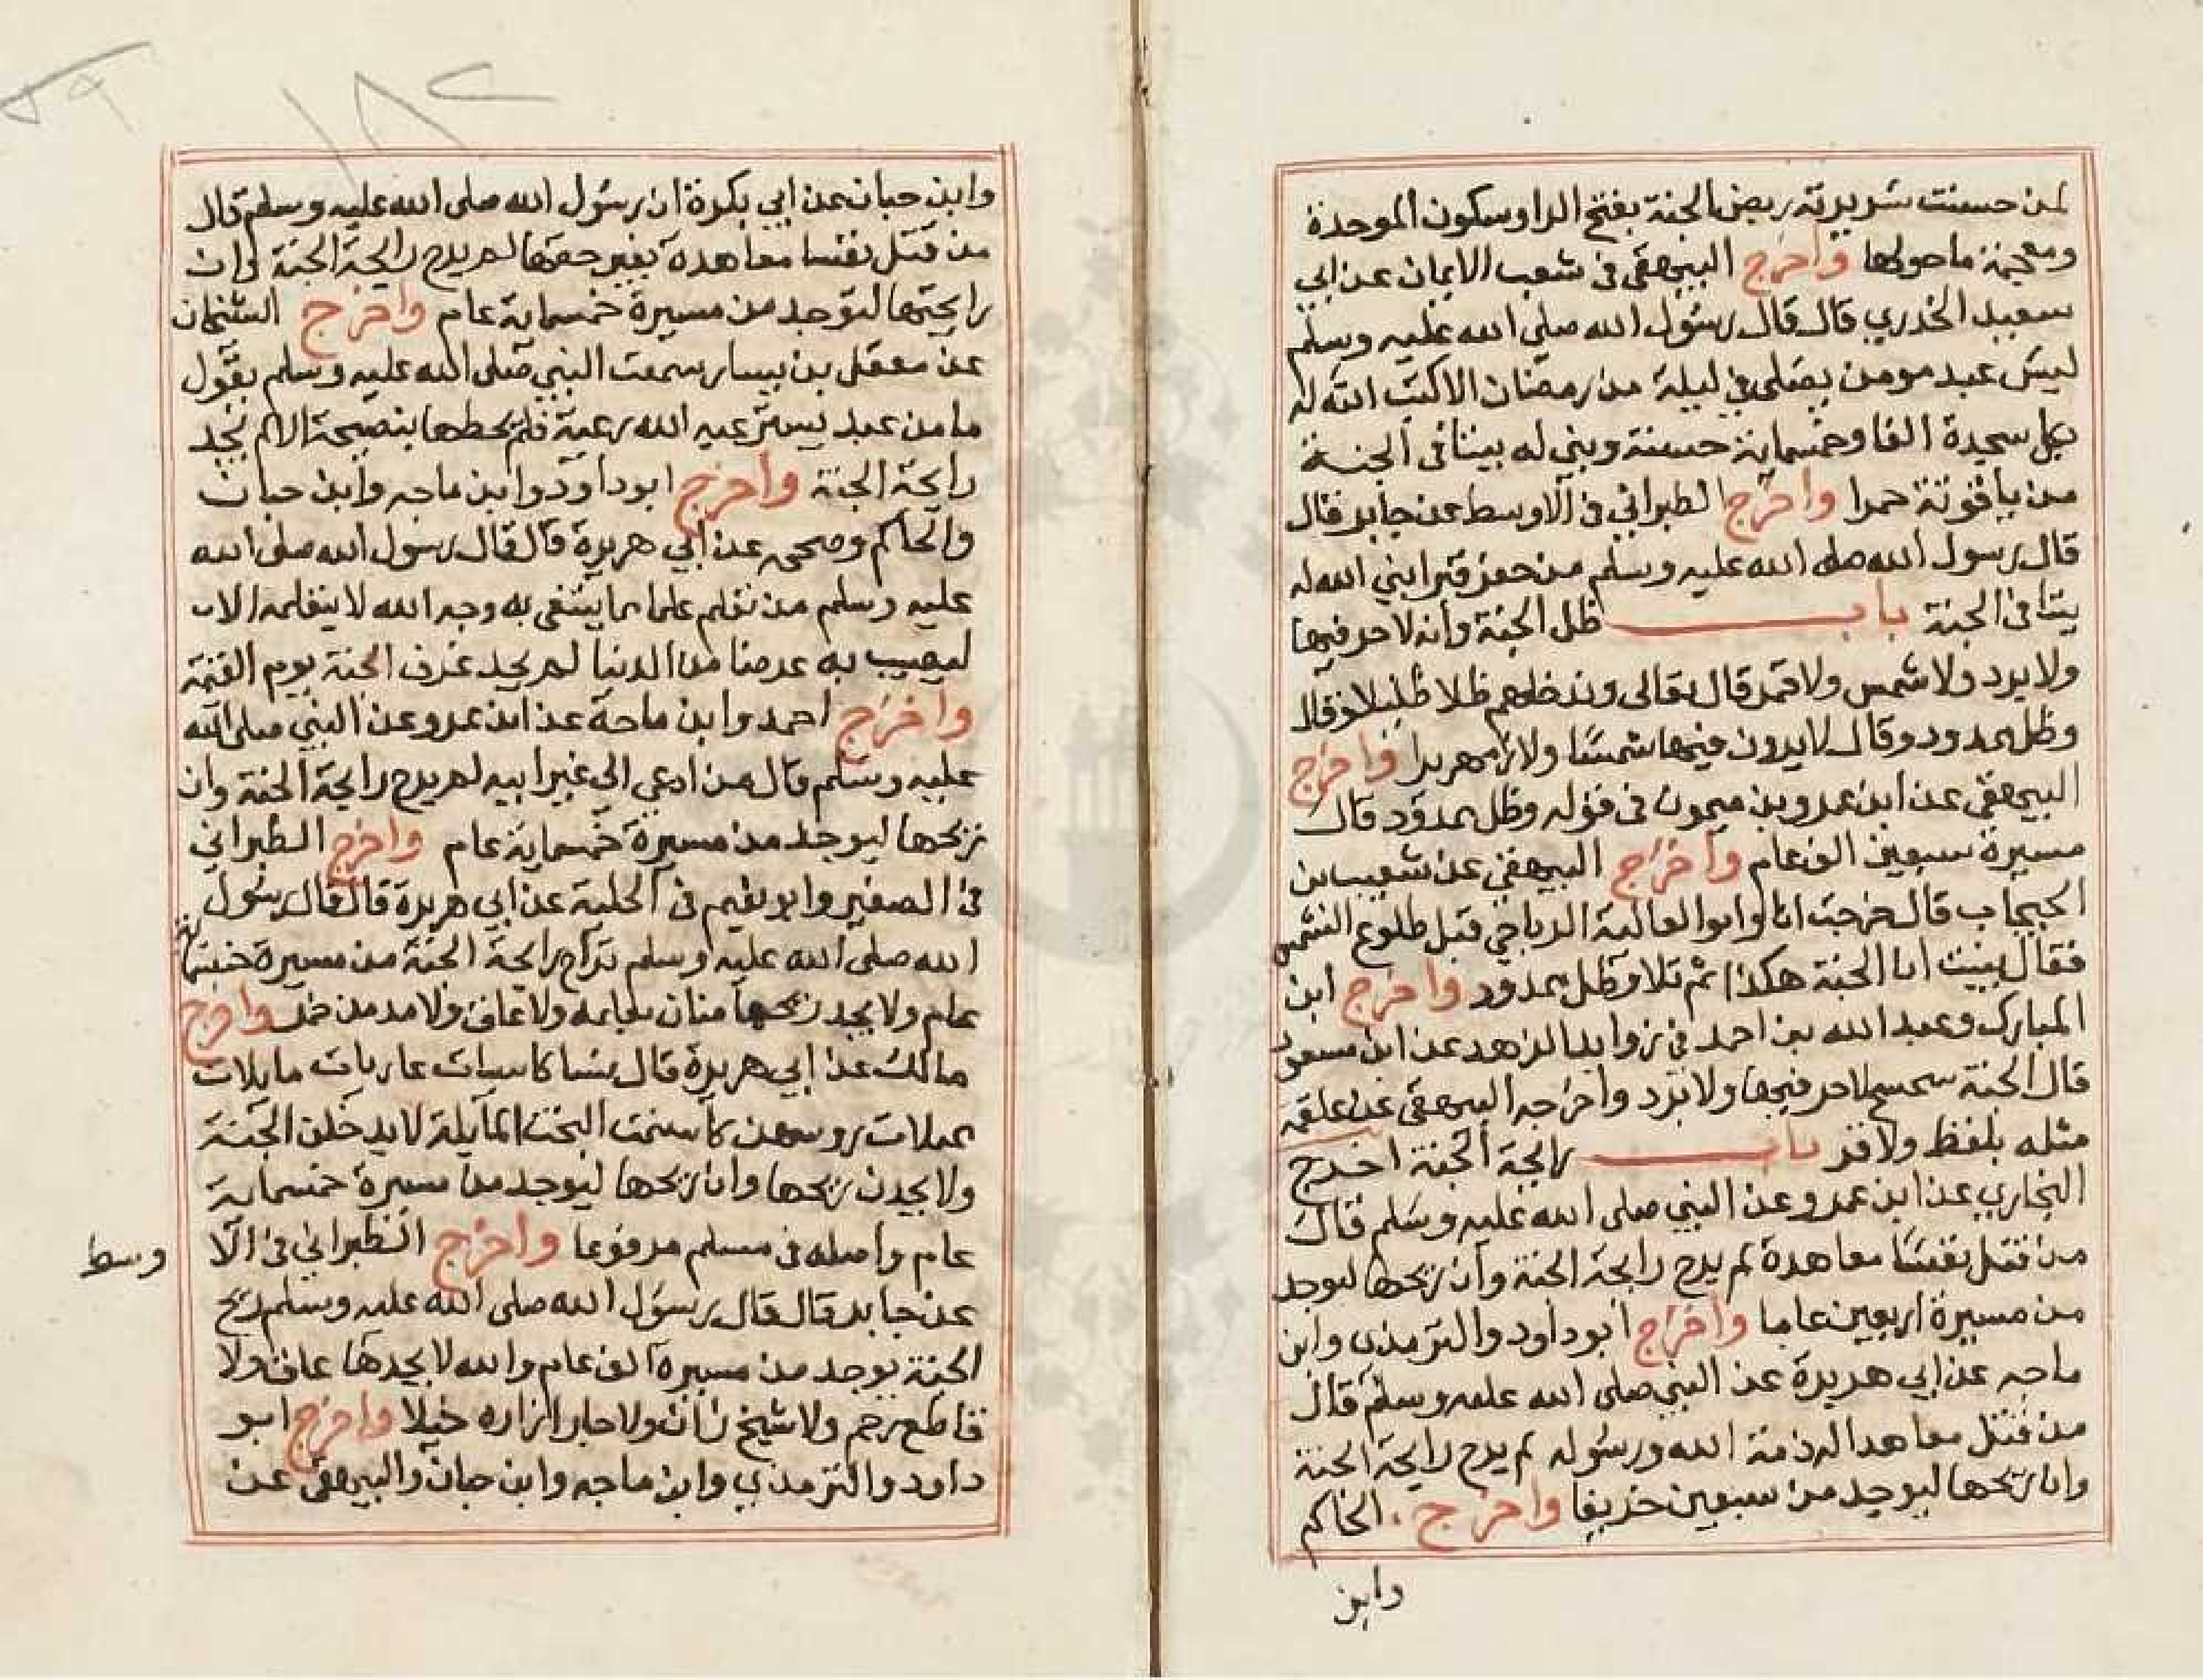 لمن حسنت سريرته ربض الجنة بفتح الرا وسكون الموحدة
ومعجمة ما حولها واخرج البيهقي في شعب الايمان عن ابي
سعيد الخدري قال قال رسول الله صلى الله عليه وسلم
ليس عبد مومن يصلي في ليلة من رمضان الا كتب الله له
بكل سجدة الفا وخمسماية حسنة وبني له بيتا في الجنة
من ياقوتة حمرا واخرج الطبراني في الاوسط عن جابر قال
قال رسول الله صلى الله عليه وسلم من حفر قبرا بني الله له
بيتا في الجنة باب ظل الجنة وانه لا حر فيها
ولا برد ولا شمس ولا قمر قال تعالى وندخلهم ظلا ظليلا وقال
وظل ممدود وقال لا يرون فيها شمسا ولا زمهريرا واخرج
البيهقي عن ابن عمرو بن ميمون في قوله وظل ممدود قال
مسيرة سبعين الف عام واخرج البيهقي عن شعيب بن
الحبحاب قال خرجت انا وابو العالية الرياحي قبل طلوع الشمس
فقال بنيت ان الجنة هكذا ثم تلا وظل ممدود واخرج ابن
المبارك وعبد الله بن احمد في زوايد الزهد عن ابن مسعود
قال الجنة سجسج لا حر فيها ولا برد واخرجه البيهقي عن علقمة
مثله بلفظ ولا قر باب رايحة الجنة اخرج
البخاري عن ابن عمرو عن النبي صلى الله عليه وسلم قال
من قتل نفسا معاهدة لم يرح رايحة الجنة وان ريحها ليوجد
من مسيرة اربعين عاما واخرج ابو داود والترمذي وابن
ماجه عن ابي هريرة عن النبي صلى الله عليه وسلم قال
من قتل معاهدا له ذمة الله ورسوله لم يرح رايحة الجنة
وان ريحها ليوجد من سبعين خريفا واخرج الحاكم
وابن
وابن حبان عن ابي بكرة ان رسول الله صلى الله عليه وسلم قال
من قتل نفسا معاهدة بغير حقها لم يرح رايحة الجنة وان
رايحتها لتوجد من مسيرة خمسماية عام واخرج الشيخان
عن معقل بن يسار سمعت النبي صلى الله عليه وسلم يقول
ما من عبد يسترعيه الله رعية فلم يحطها بنصيحة الا لم يجد
رايحة الجنة واخرج ابو داود وابن ماجه وابن حبان
والحاكم وصححه عن ابي هريرة قال قال رسول الله صلى الله
عليه وسلم من تعلم علما مما يبتغي به وجه الله لا يتعلمه الا
ليصيب به عرضا من الدنيا لم يجد عرف الجنة يوم القيمة
واخرج احمد وابن ماجة عن ابن عمرو عن النبي صلى الله
عليه وسلم قال من ادعي الى غير ابيه لم يرح رايحة الجنة وان
ريحها ليوجد من مسيرة خمسماية عام واخرج الطبراني
في الصغير وابو نعيم في الحلية عن ابي هريرة قال قال رسول
الله صلى الله عليه وسلم تراح رايحة الجنة من مسيرة خمسماية
عام ولا يجد ريحها منان بعمله ولا عاق ولا مدمن خمر واخرج
مالك عن ابي هريرة قال نسا كاسيات عاريات مايلات
مميلات روسهن كاسنمت البخت المايلة لا يدخلن الجنة
ولا يجدن ريحها وان ريحها ليوجد من مسيرة خمسماية
عام واصله في مسلم مرفوعا واخرج الطبراني في الا
وسط
عن جابر قال قال رسول الله صلى الله عليه وسلم ريح
الجنة يوجد من مسيرة الف عام والله لا يجدها عاق ولا
قاطع رحم ولا شيخ زان ولا جار ازاره خيلا واخرج ابو
داود والترمذي وابن ماجه وابن حبان والبيهقي عن